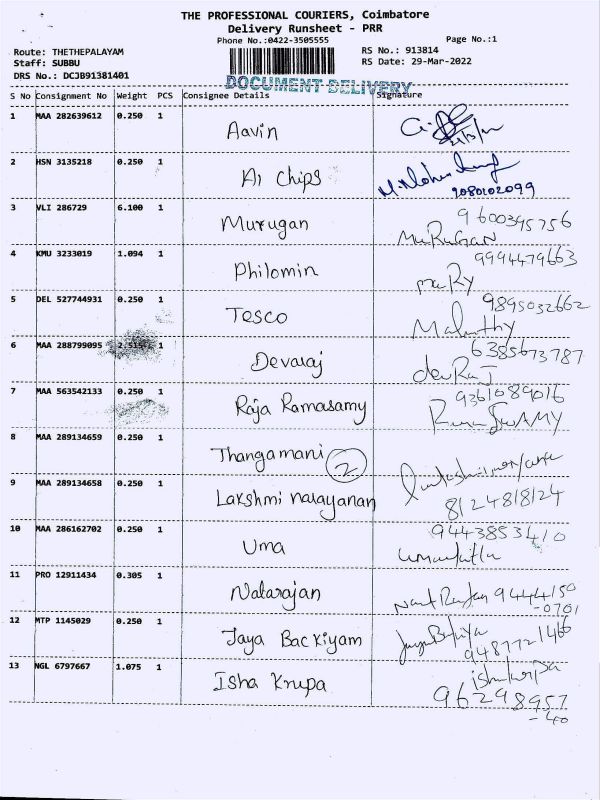 THE PROFESSIONAL COURIERS, Coimbatore
Delivery Runsheet - PRR
Phone No.:0422-3505555
Page No.:1
Route: THETHEPALAYAM
RS No.: 913814
Staff: SUBBU
RS Date: 29-Mar-2022
DRS No.: DCJB91381401
DOCUMENT DELIVERY
S No Consignment No Weight PCS Consignee Details Signature
1 MAA 282639612 0.250 1 Aavin
2 HSN 3135218 0.250 1 A1 Chips
9080102099
3 VLI 286729 6.100 1 Murugan 9600395756
MuRuGaN
4 KMU 3233019 1.094 1 Philomin 9994479663
maRy
5 DEL 527744931 0.250 1 Tesco 9895032662
Malathy
6 MAA 288799095 1 Devaraj 6385673787
devRaJ
7 MAA 563542133 0.250 1 Raja Ramasamy 9361089016
8 MAA 289134659 0.250 1 Thangamani 2
9 MAA 289134658 0.250 1 Lakshmi narayanan 8124818124
10 MAA 286162702 0.250 1 Uma 9443853410
11 PRO 12911434 0.305 1 Natarajan 9444150
-0701
12 MTP 1145029 0.250 1 Jaya Backiyam
9487721466
13 NGL 6797667 1.075 1 Isha Krupa
96298957
-40